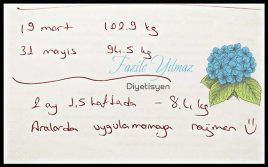 19 mart 102.9 kg
31 mayıs 94.5 kg
Fazile Yılmaz
Diyetisyen
2 ay 1,5 haftada - 8.4 kg
Aralarda uygulamamaya rağmen